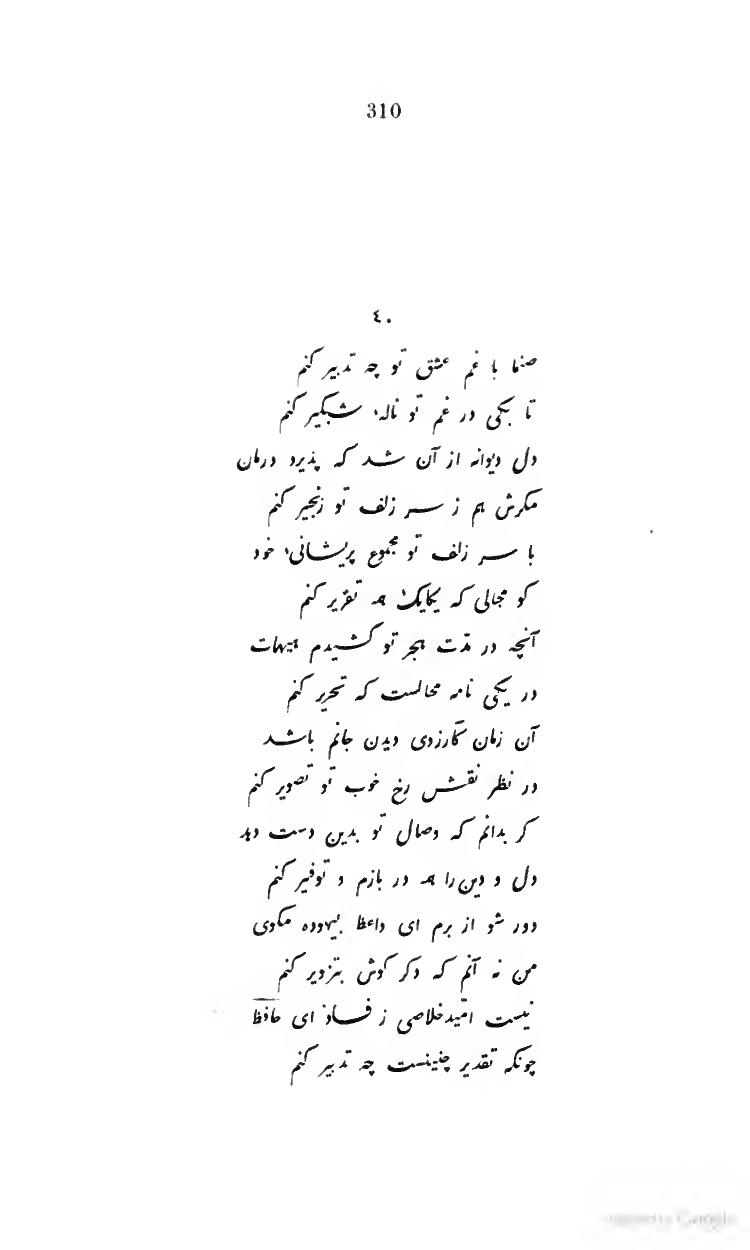 310
٤٠
صنما با غم عشق تو چه تدبیر کنم
تا بکی در غم تو نالهٔ شبگیر کنم
دل دیوانه از آن شد که پذیرد درمان
مکرش هم ز سر زلف تو زنجیر کنم
با سر زلف تو مجموع پریشانیٔ خود
کو مجالی که یکایک همه تقریر کنم
آنچه در مدّت هجر تو کشیدم هیهات
در یکی نامه محالست که تحریر کنم
آن زمان کارزوی دیدن جانم باشد
در نظر نقش رخ خوب تو تصویر کنم
کر بدانم که وصال تو بدین دست دهد
دل و دین را همه در بازم و توفیر کنم
دور شو از برم ای واعظ بیهوده مکوی
من نه آنم که دکر کوش بتزویر کنم
نیست امّید خلاصی ز فساد ای حافظ
چونکه تقدیر چنینست چه تدبیر کنم